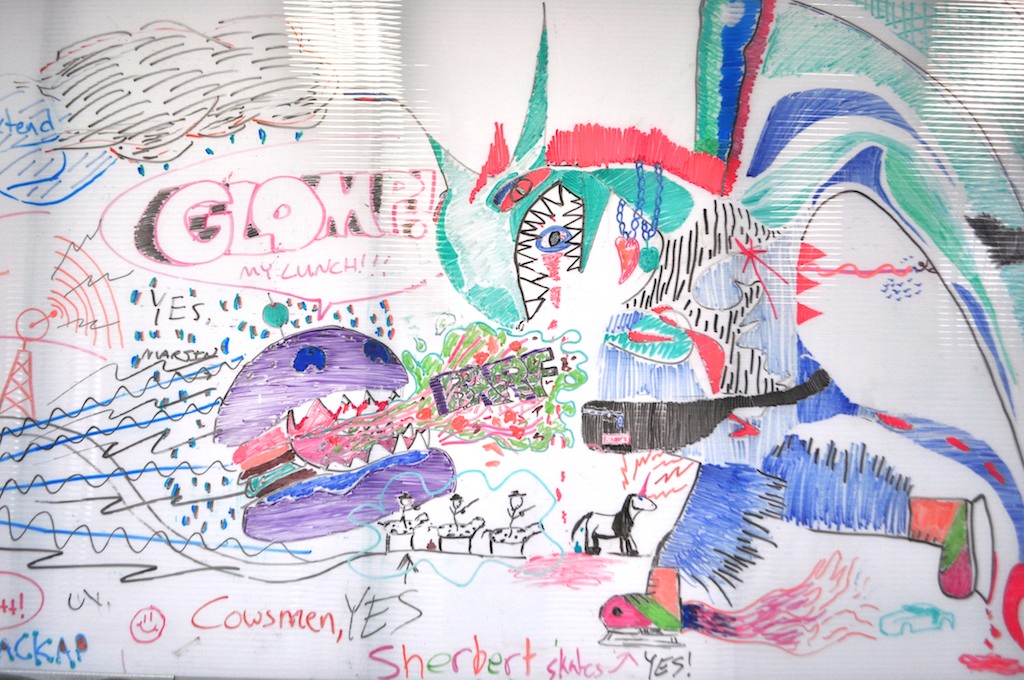 tend
GLOMP!
MY LUNCH!!!
YES.
BARF
tt!
UN.
Cowsmen, YES
ACKAP
Sherbert skates YES!